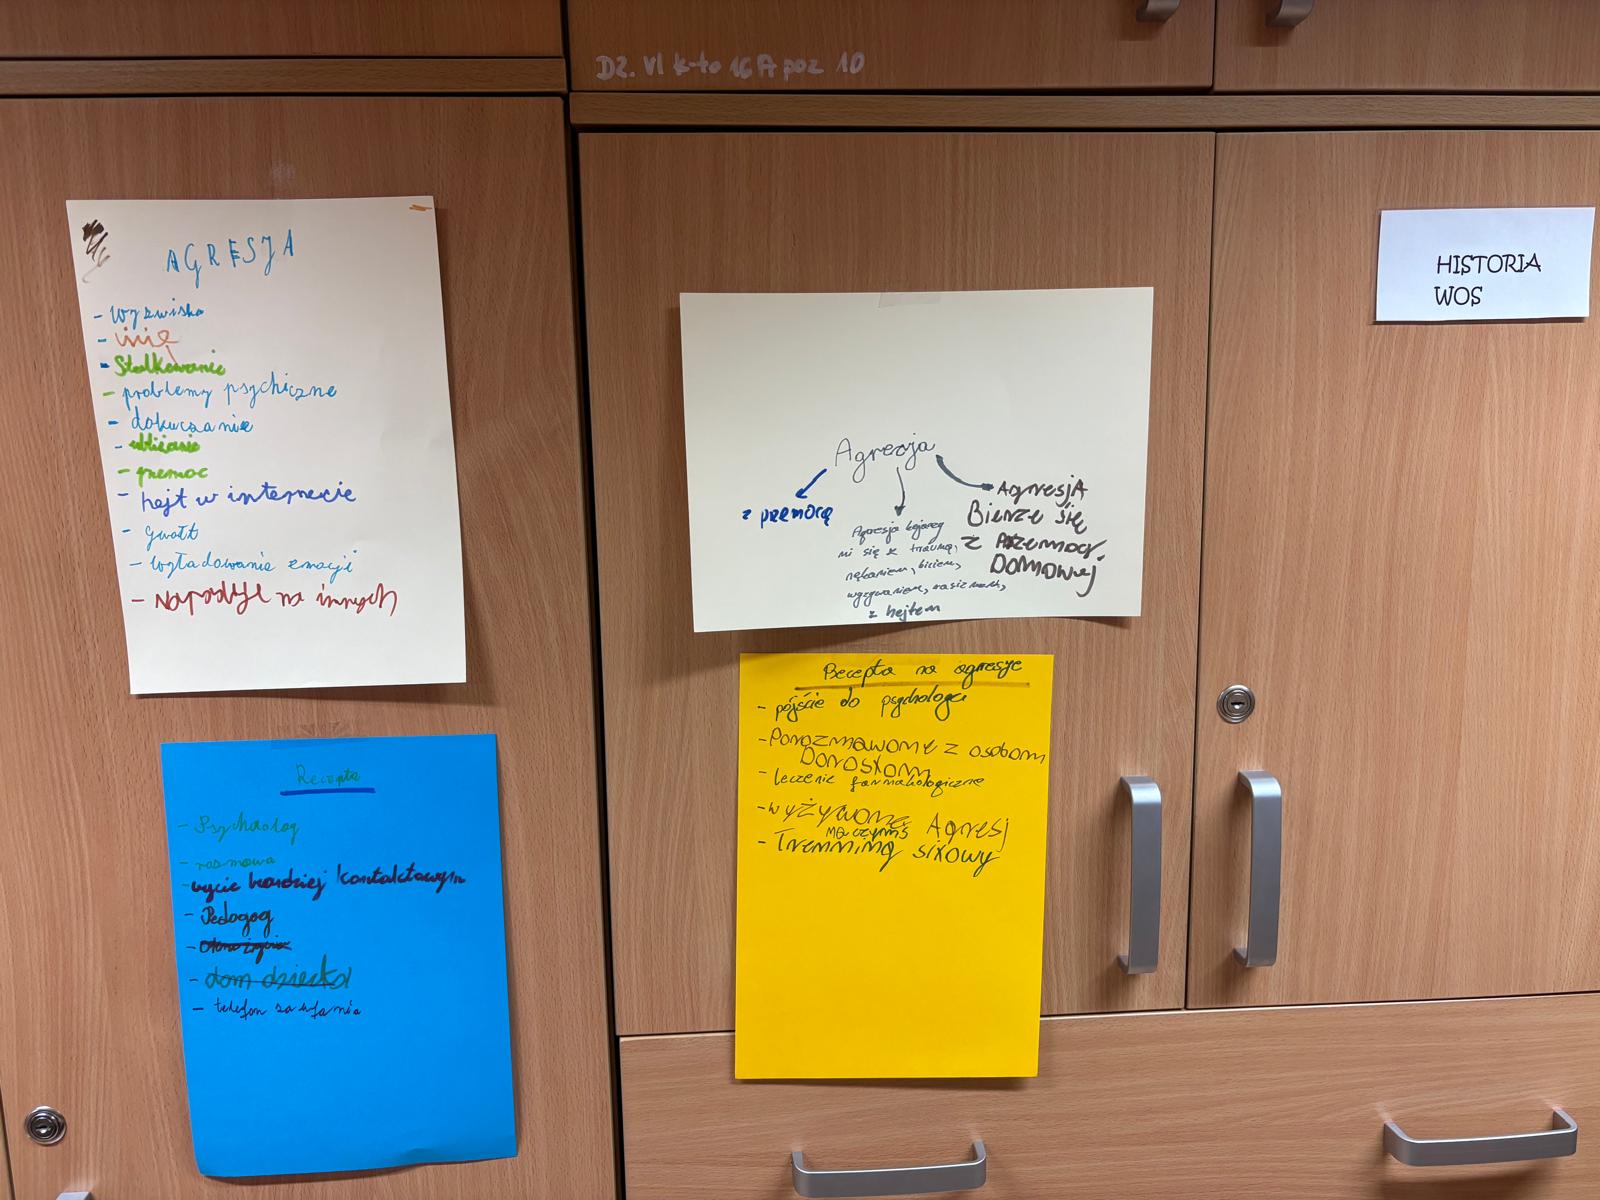 DZ. VI k-to 16A poz 10
AGRESJA
- wyzwiska
- Stalkowanie
- problemy psychiczne
- dokuczanie
- ubliżanie
- pżemoc
- hejt w internecie
- gwałt
- wyładowania emocji
- na innych
Recepta
- Psycholog
- rozmowa
- bycie bardziej kontaktowym
- Pedagog
- dom dziecka
- telefon zaufania
Agresja
z przemocą
Agresja kojarzy
mi się z traumą,
nękaniem, biciem,
wyzywaniem, rasizmem,
z hejtem
AgresjA
Bierze się
z Przemocy
Domowej
Recepta na agresje
- pójście do psychologa
- Porozmawianie z osobom
Dorosłom
- leczenie farmakologiczne
- wyżywanie Agresj
na czymś
- Trenning siłowy
HISTORIA
WOS